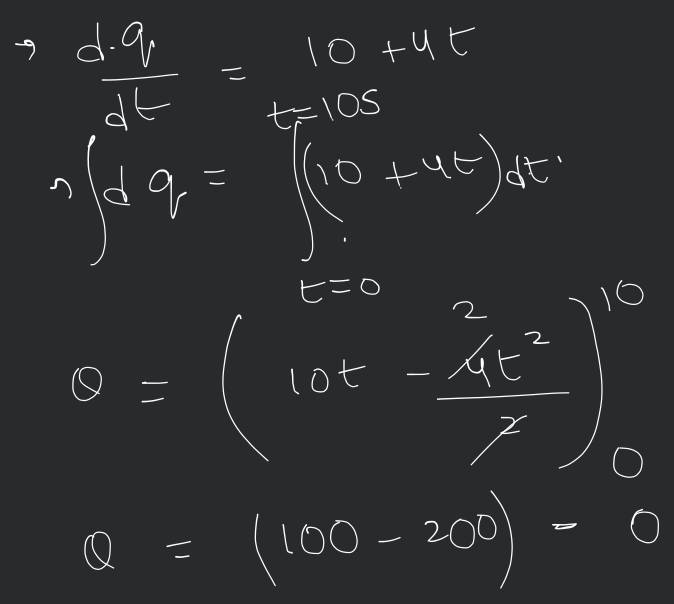 → d.q/dt = 10 + 4t
→ ∫dq = ∫_{t=0}^{t=10s} (10 + 4t) dt.
Q = (10t - 4t²/2)₀¹⁰ 2
Q = (100 - 200) - 0